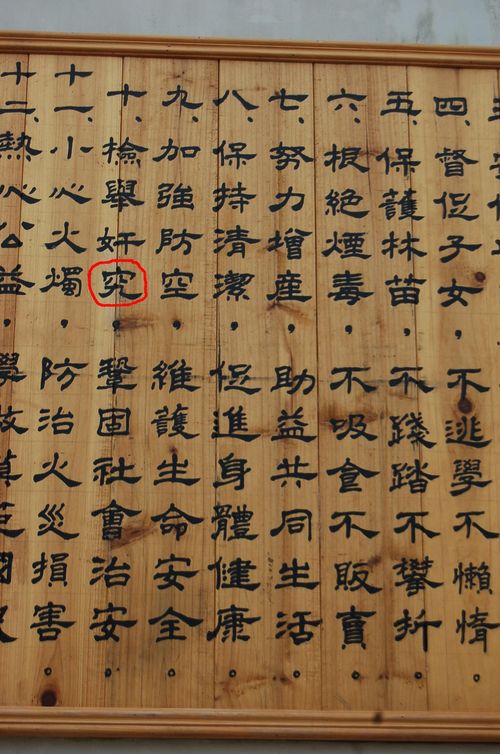 四、督促子女，不逃學不懶惰。
五、保護林苗，不踐踏不攀折。
六、根絕煙毒，不吸食不販賣。
七、努力增產，助益共同生活。
八、保持清潔，促進身體健康。
九、加強防空，維護生命安全。
十、檢舉奸究，鞏固社會治安。
十一、小心火燭，防治火災損害。
十二、熱心公益，